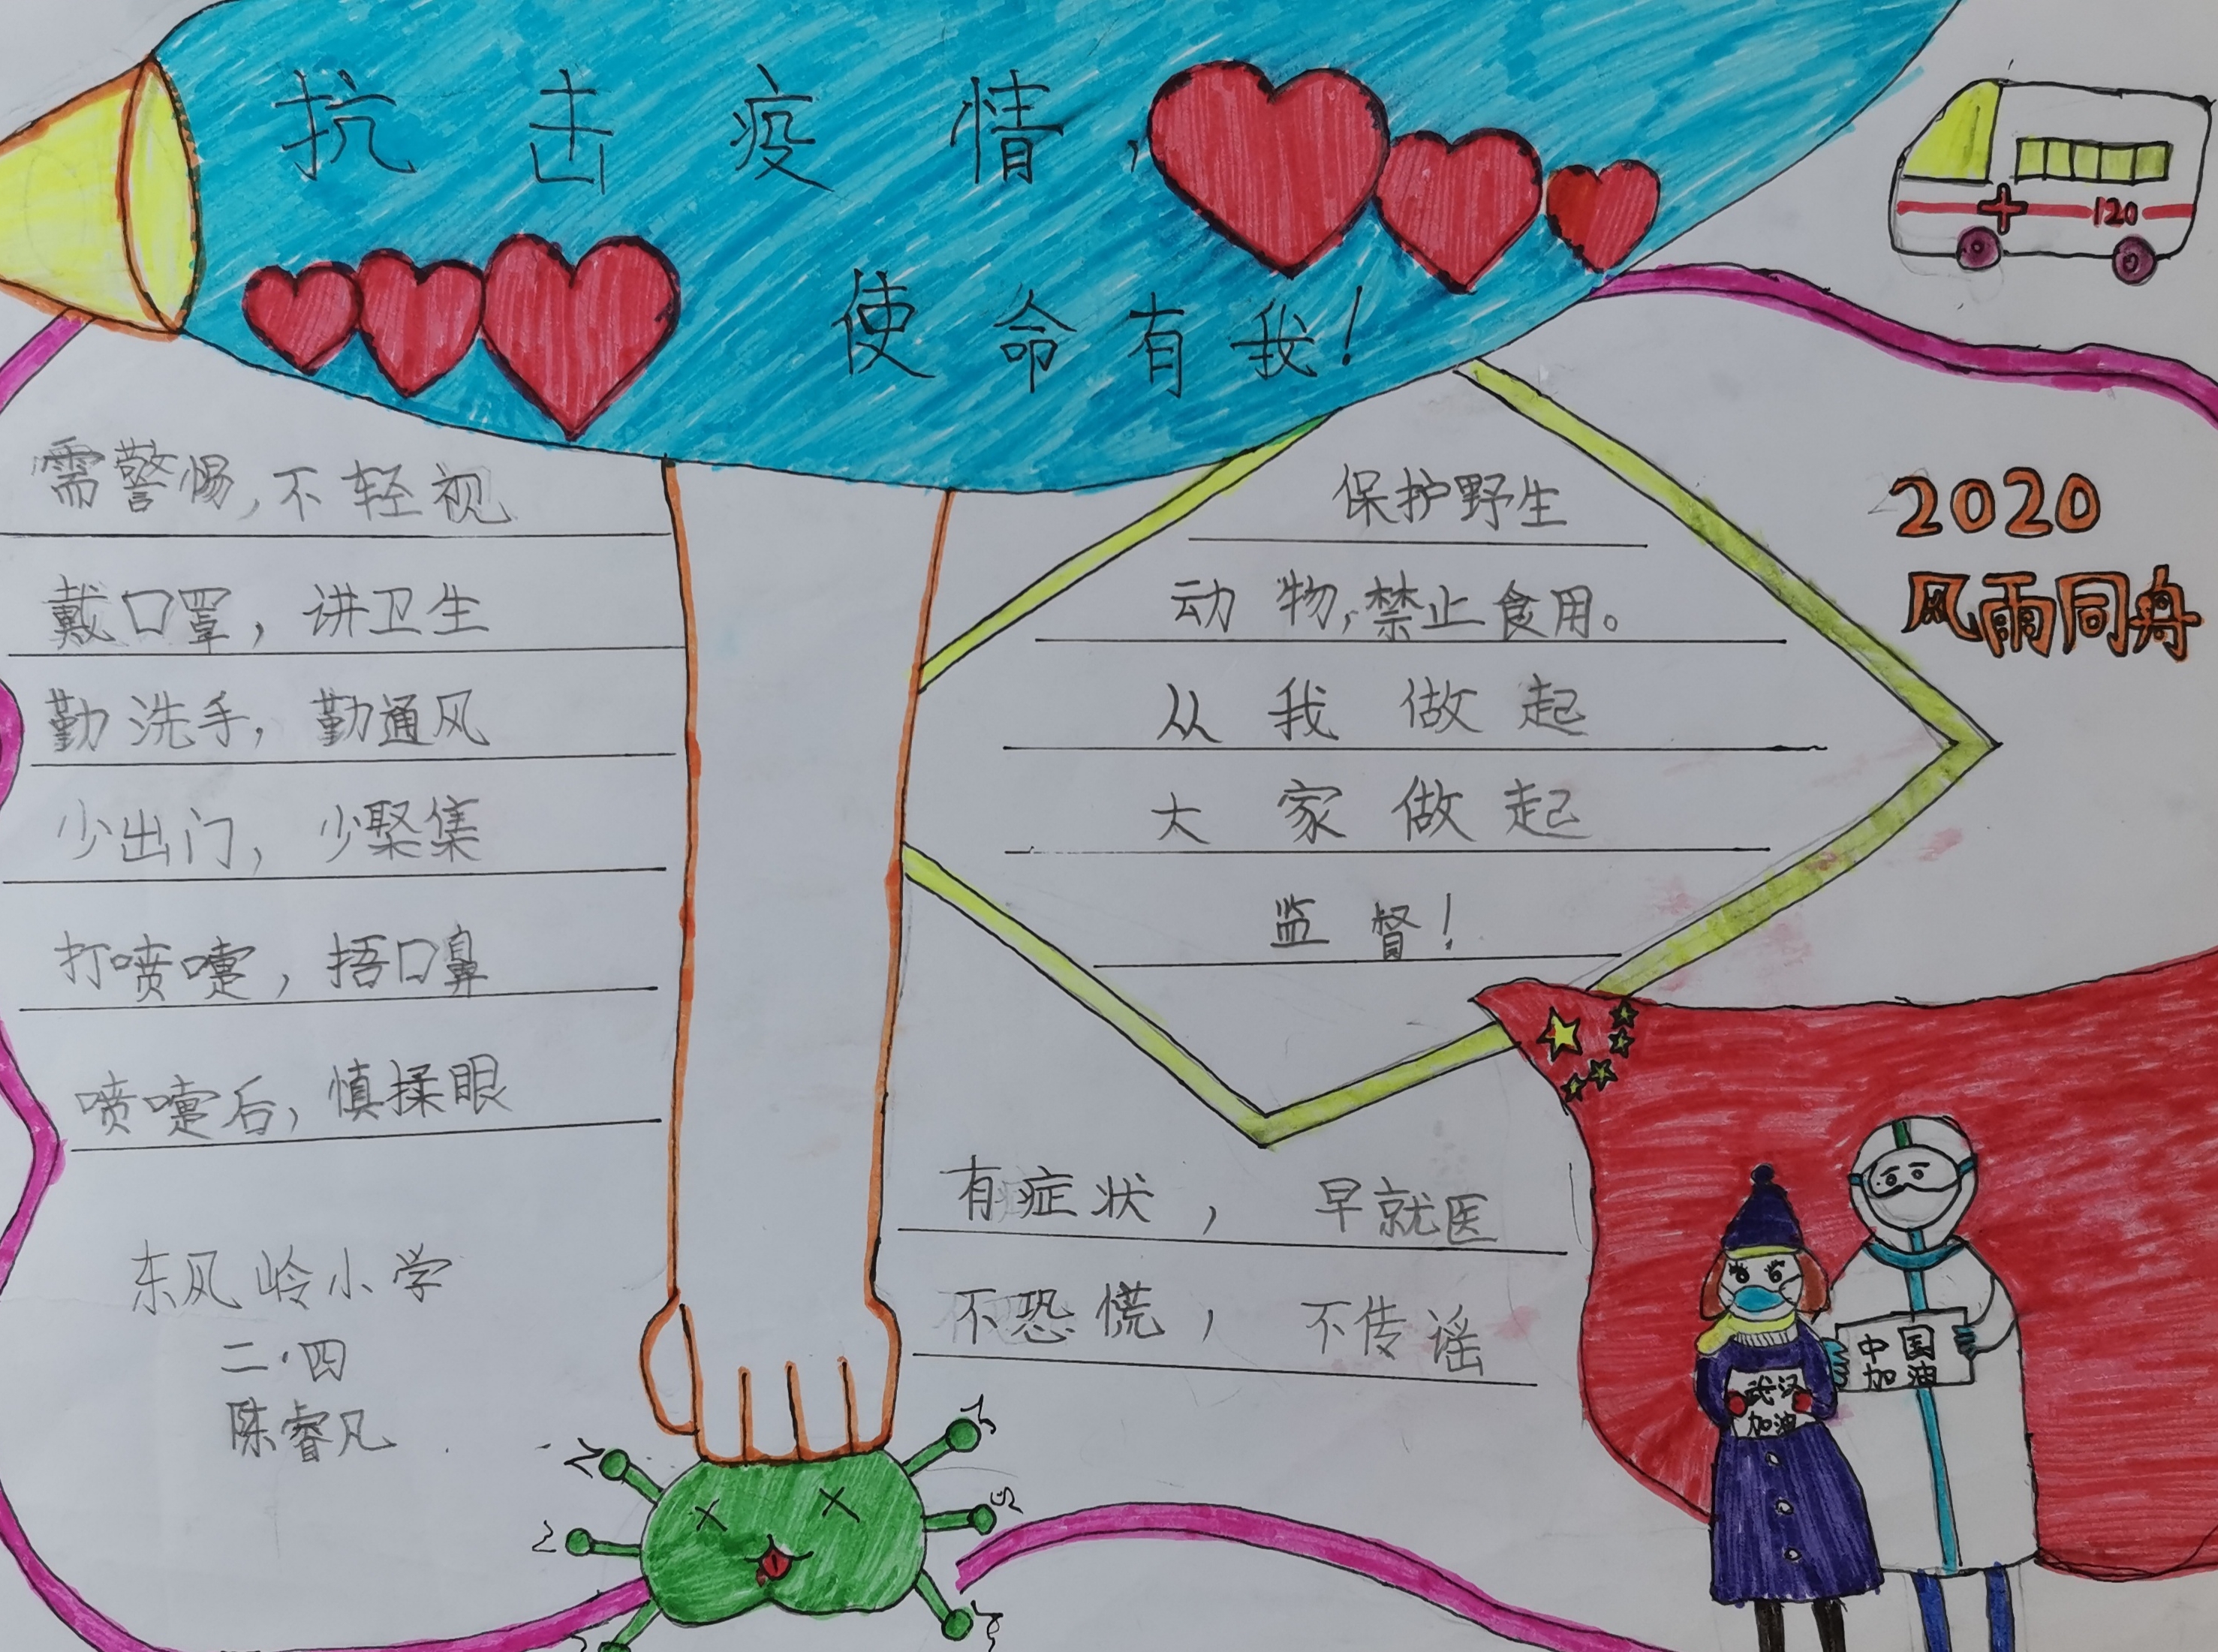 抗击疫情,
使命有我!
120
需警惕,不轻视
戴口罩,讲卫生
勤洗手,勤通风
少出门,少聚集
打喷嚏,捂口鼻
喷嚏后,慎揉眼
东风岭小学
二·四
陈睿凡
保护野生
动物,禁止食用。
从我做起
大家做起
监督!
2020
风雨同舟
有症状,早就医
不恐慌,不传谣
中国
加油
武汉
加油